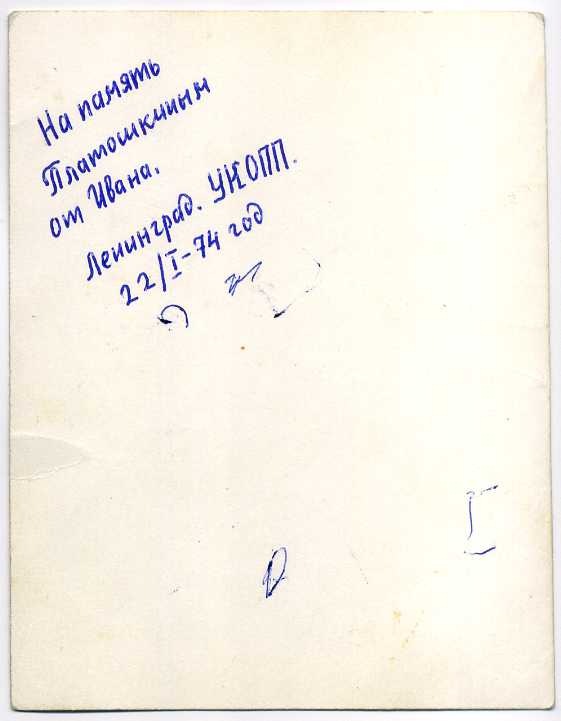 На память
Платошкиным
от Ивана.
Ленинград. УКОПП.
22/I-74 год